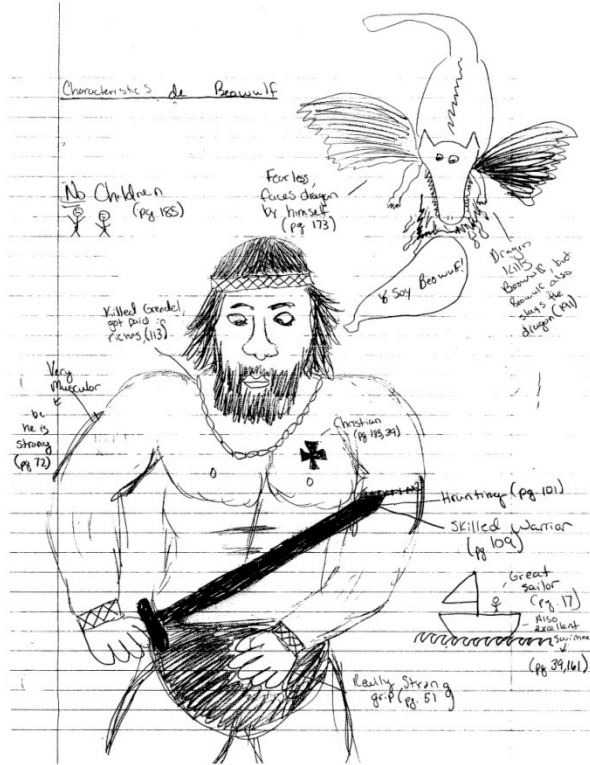 Characteristics de Beowulf
No Children
(pg 185)
Fearless,
faces dragon
by himself
(pg 173)
Dragon
kills
Beowulf, but
Beowulf also
slays the
dragon (191)
Soy Beowulf!
Killed Grendel,
got paid in
riches (113)
Very
Muscular
be
he is
strong
(pg 72)
Christian
(pg 185, 39)
Hrunting (pg 101)
Skilled Warrior
(pg 109)
Great
sailor
(pg. 17)
Also
excellent
(pg 39, 161)
Really Strong
grip (pg. 51